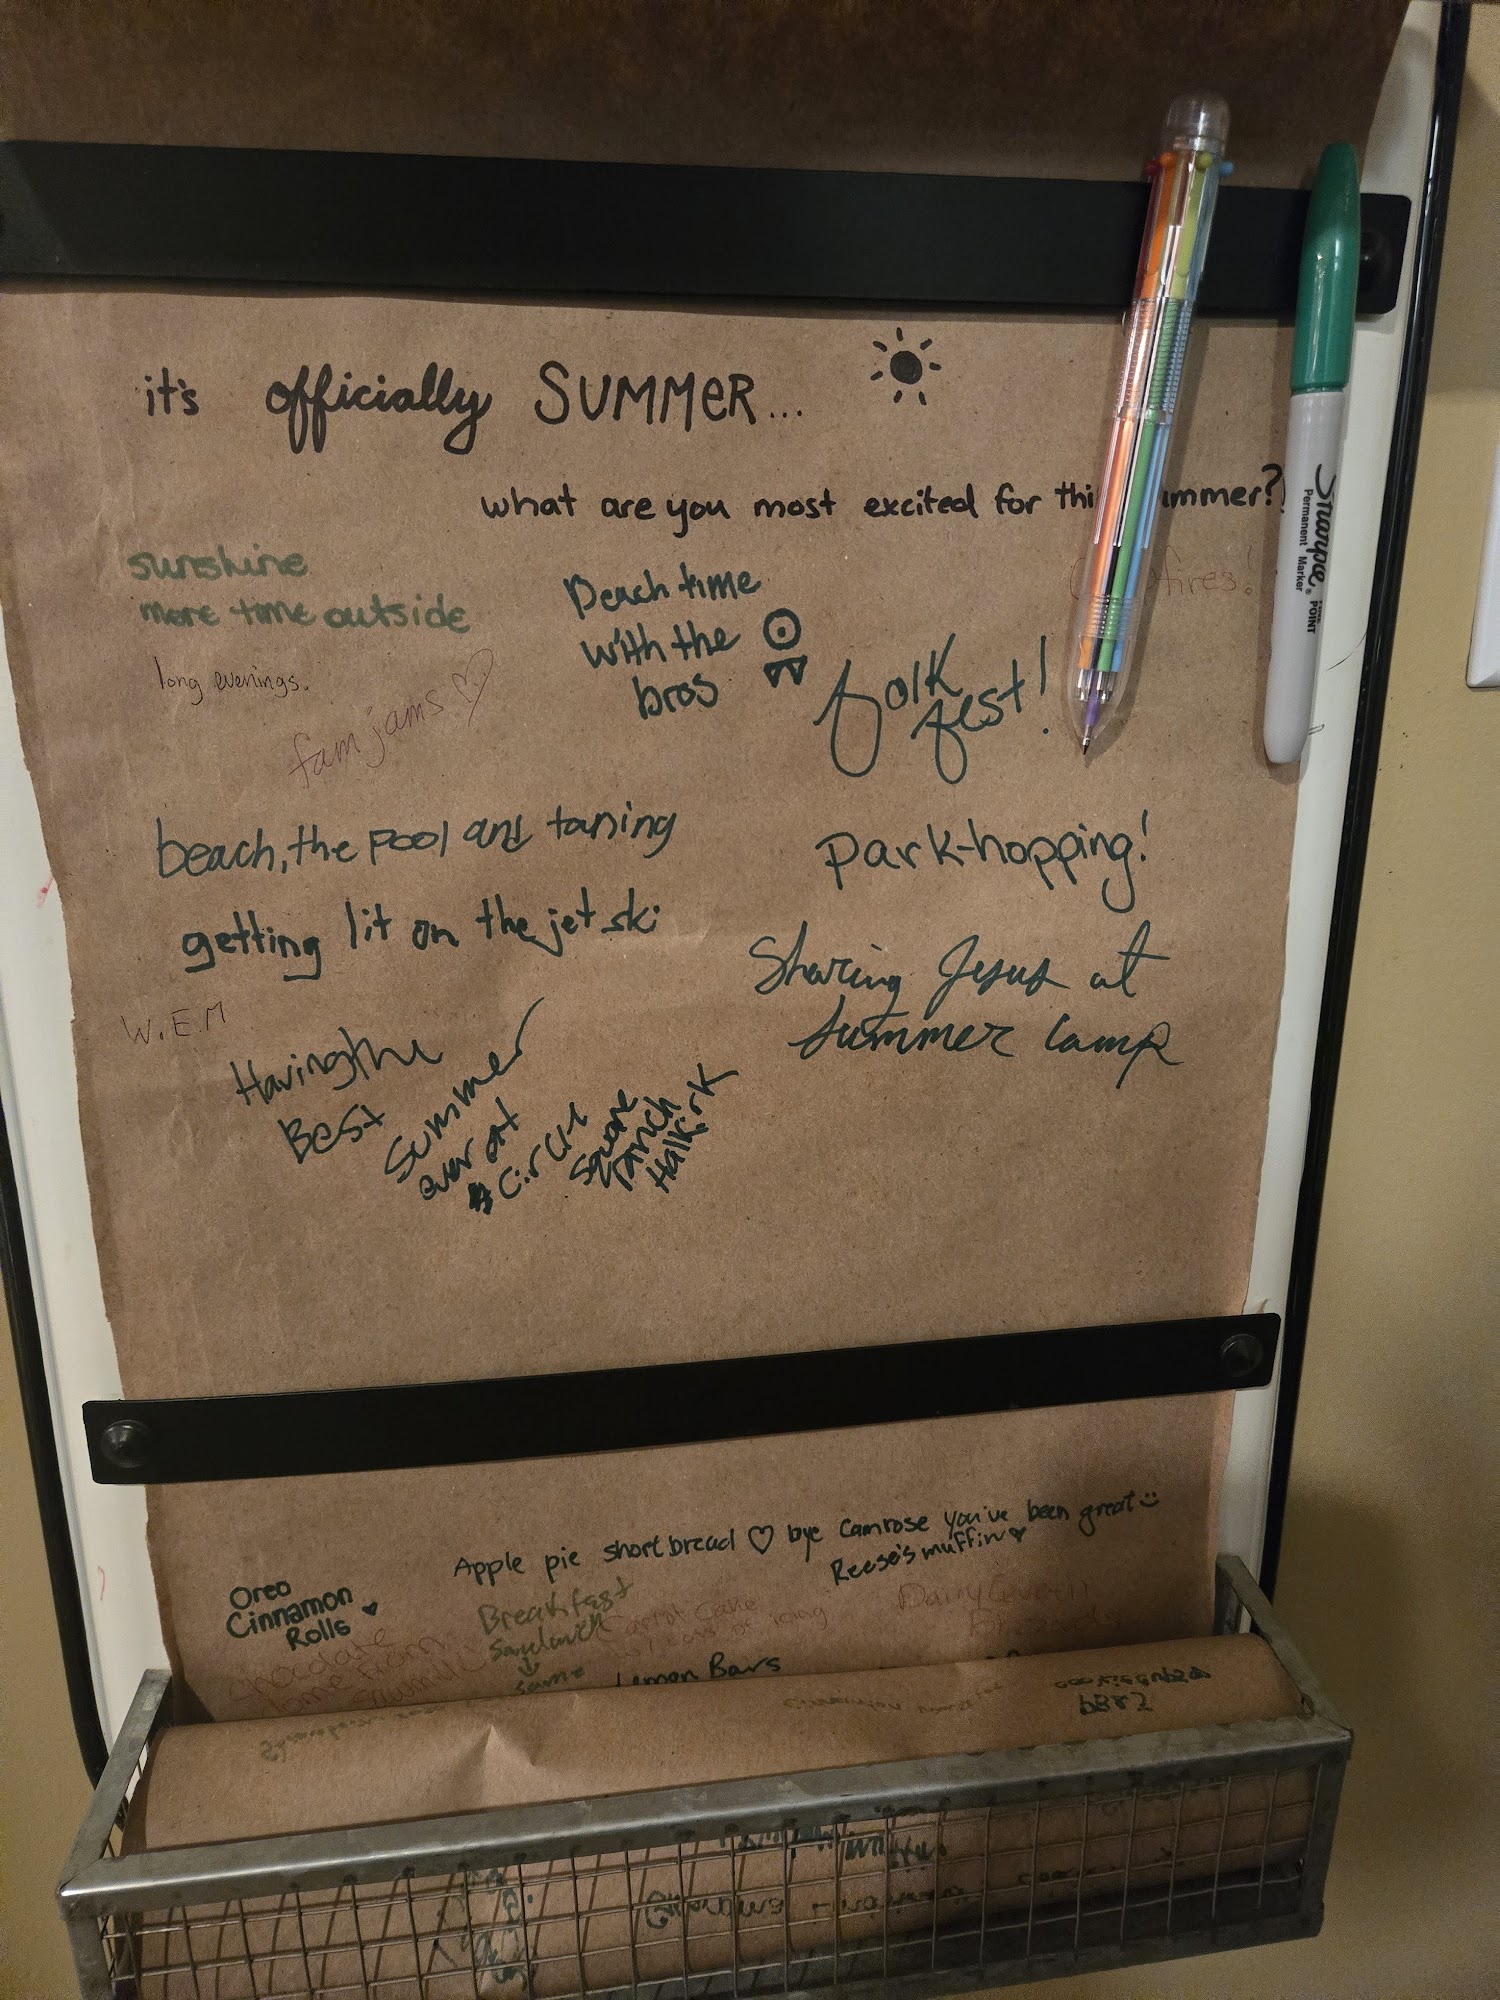 it's officially SUMMER...
what are you most excited for thi ummer?
sunshine
more time outside
long evenings.
fam jams
Beach time
with the
bros
fires!
folk
fest!
Sharpie
Permanent Marker
POINT
beach, the pool and taning
getting lit on the jet ski
park-hopping!
Sharing Jesus at
summer camp
W.E.M
Having the
Best
summer
ever at
Circle
Square
ranch
Halkirk
Apple pie shortbread ♡ bye Camrose you've been great
Reese's muffin
Oreo
Cinnamon
Rolls
Breakfast
Sandwich
same
Carrot Cake
icing
Chocolate
Dairy
Lemon Bars
cinnamon
cookie cups
PB&J
Grandma